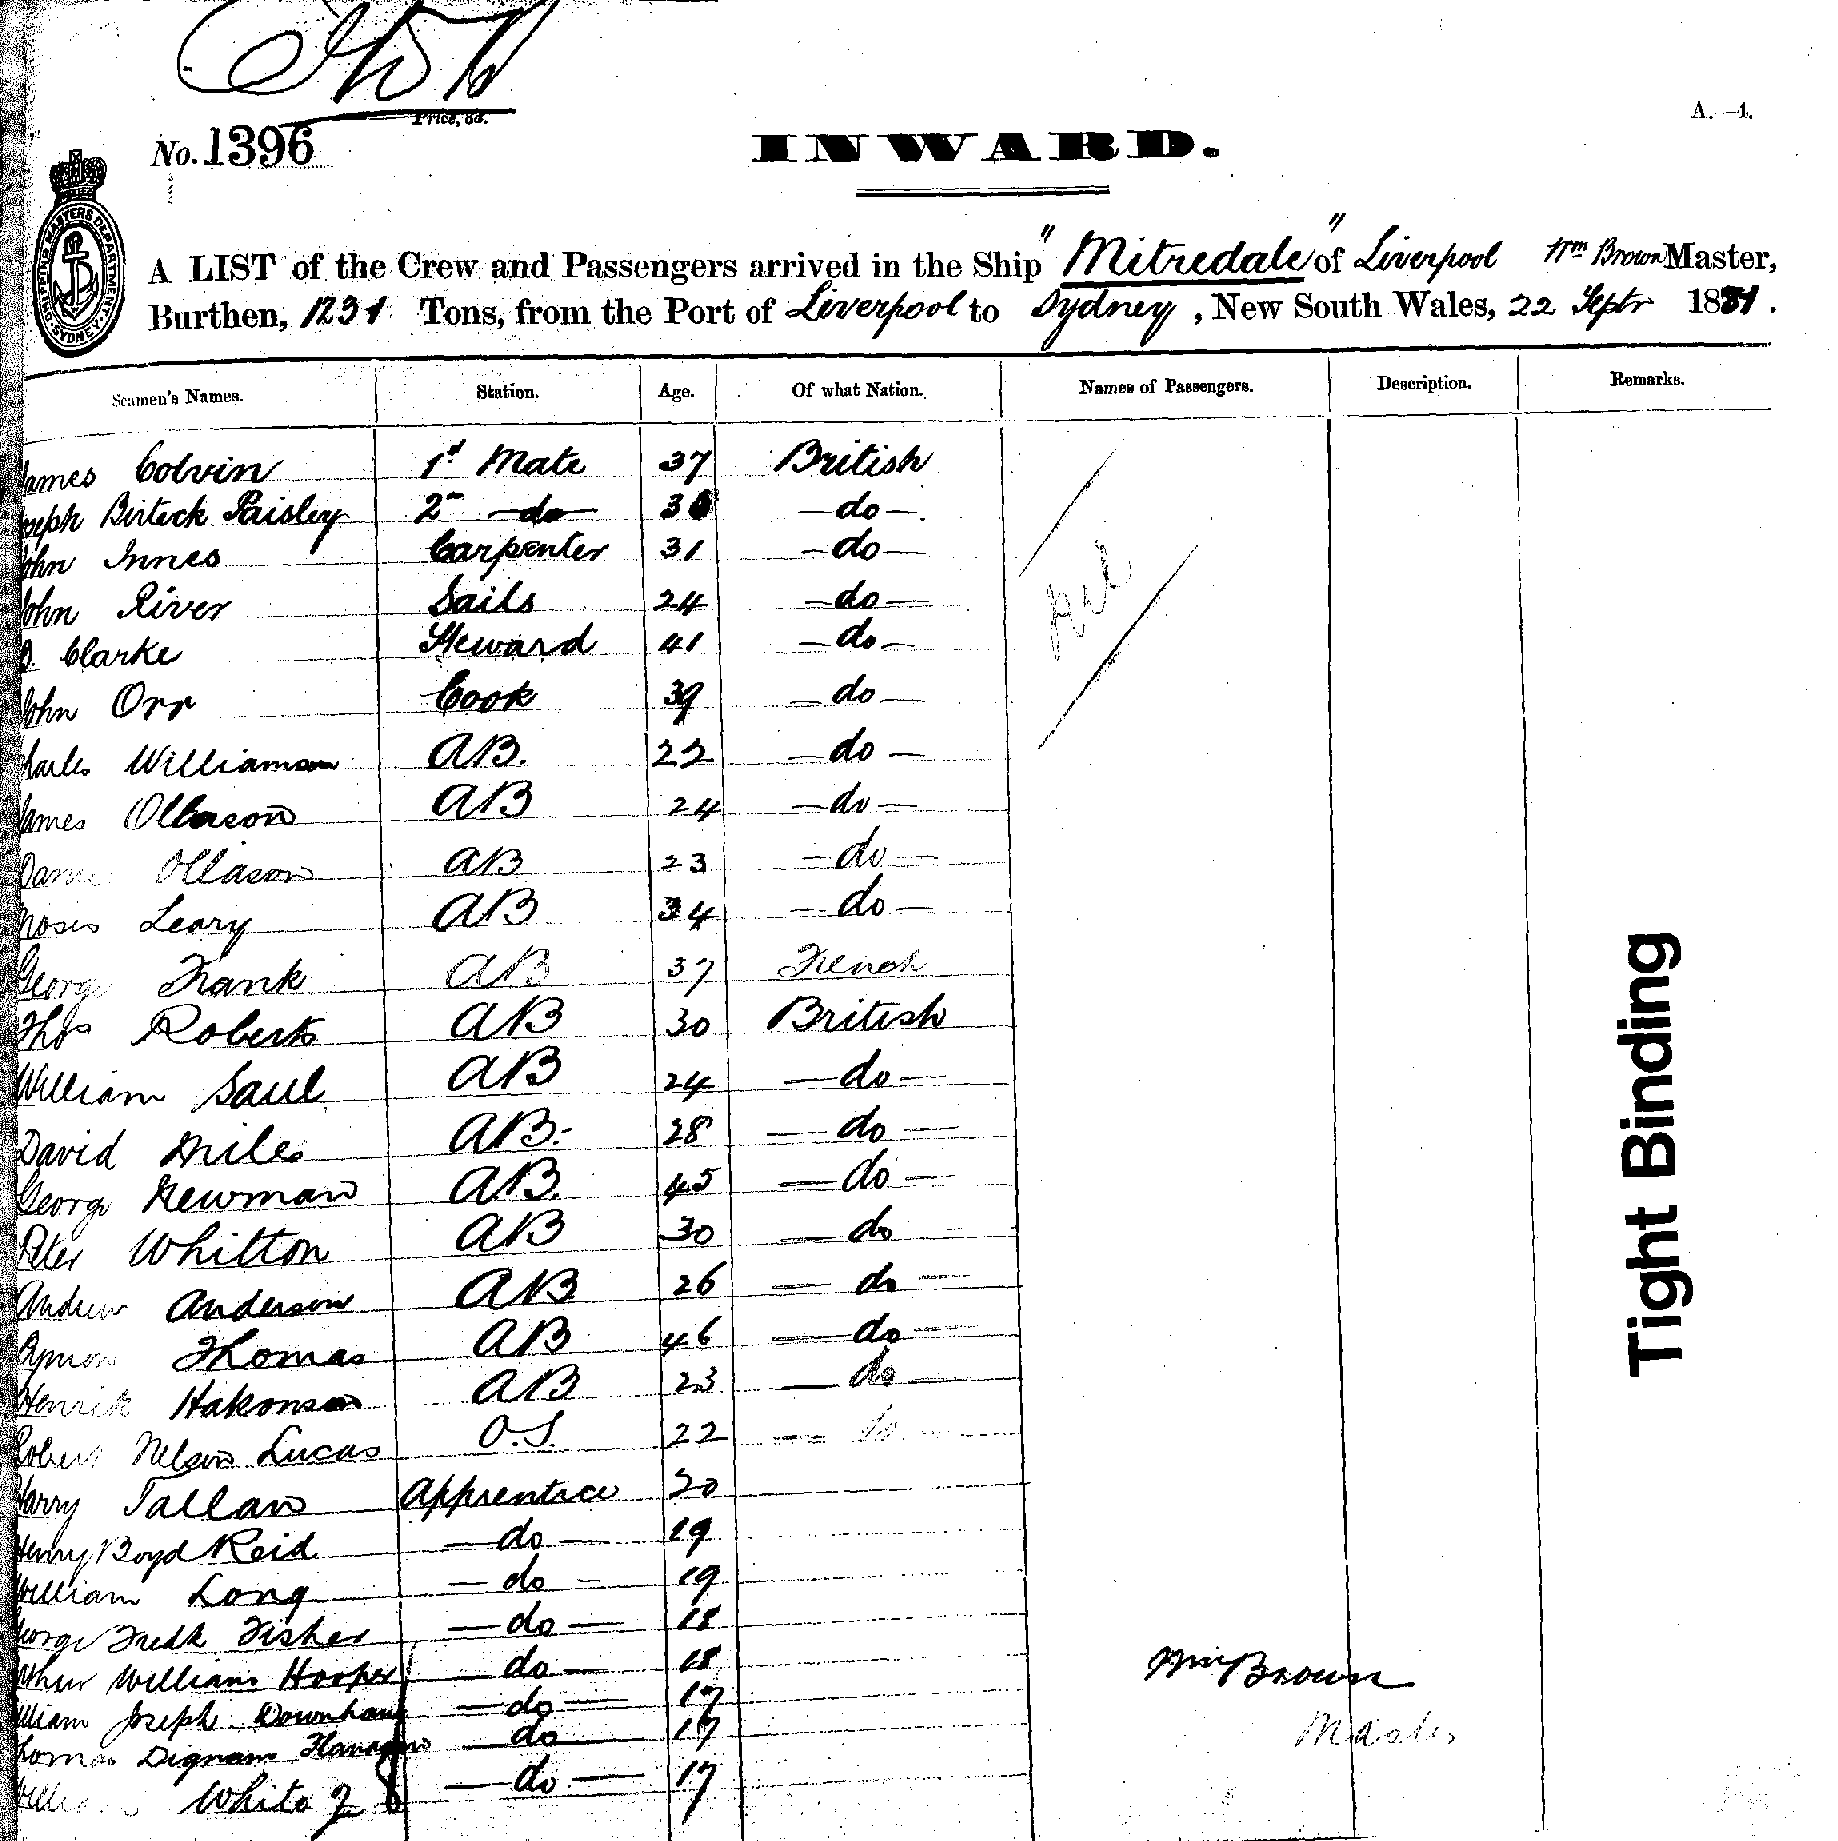 Price, 6d.
No. 1396
A.—4.
INWARD.
SHIPPING MASTERS DEPARTMENT SYDNEY
A LIST of the Crew and Passengers arrived in the Ship "Mitredale" of Liverpool Wm Brown Master,
Burthen, 1231 Tons, from the Port of Liverpool to Sydney, New South Wales, 22 Septr 1881.
Seamen's Names. Station. Age. Of what Nation. Names of Passengers. Description. Remarks.
James Colvin 1st Mate 37 British
Joseph Birteck Paisley 2nd —do— —do—
John Innes Carpenter 31 —do—
John River Sails 24 —do—
Clarke Steward 41 —do—
John Orr Cook 39 —do—
Nil
Charles Williamson AB. 22 —do—
James Ollason AB 24 —do—
Ollason AB 23 —do—
Moses Leary AB 34 —do—
George Frank AB 37 French
Thos Roberts AB 30 British
William Saul AB 24 —do—
David Miles AB. 28 —do—
George Newman AB. 45 —do—
Peter Whitton AB 30 —do—
Andrew Anderson AB 26 —do—
Thomas AB 46 —do—
Henrik Hakonson AB 23 —do—
Robert Nelson Lucas O.S. 22 —do—
Harry Tallan Apprentice 20
Henry Boyd Reid —do— 19
William Long —do— 19
George Fredk Fisher —do— 18
Arthur William Hooper —do— 18
William Joseph Downham —do— 17
Thomas Dignam Flanagan —do— 17
William White —do— 17
Wm Brown
Master
Tight Binding